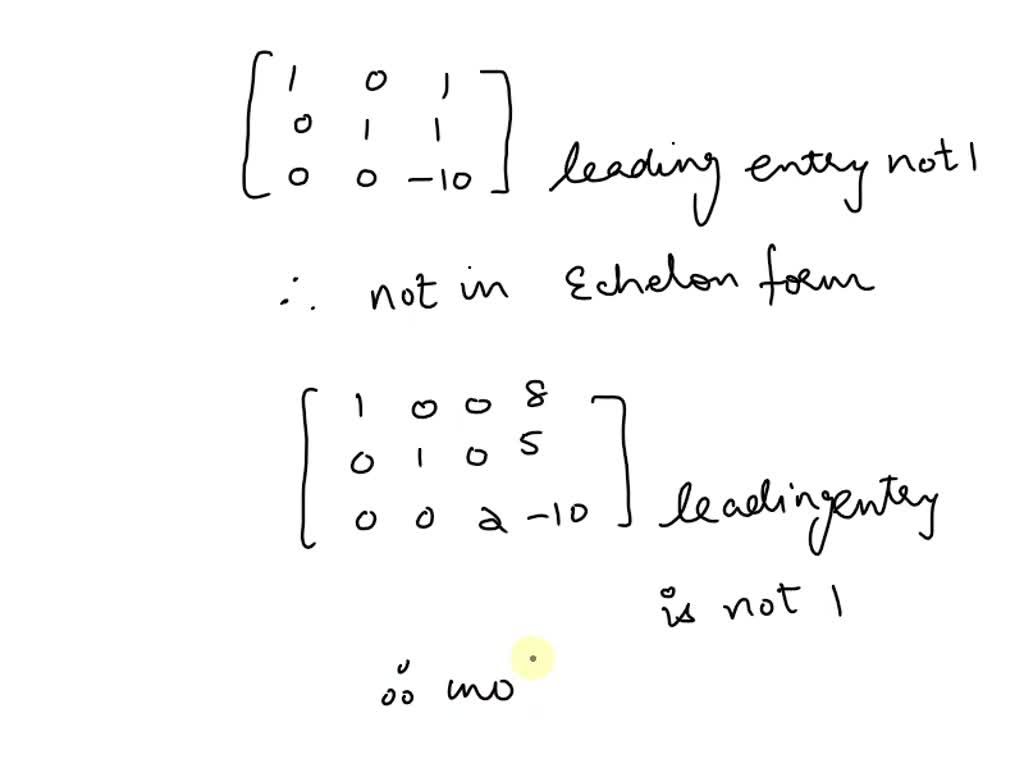 1 0 1
0 1 1
0 0 -10 leading entry not 1
∴ not in Echelon form
1 0 0 8
0 1 0 5
0 0 2 -10 leading entry
is not 1
∴ no